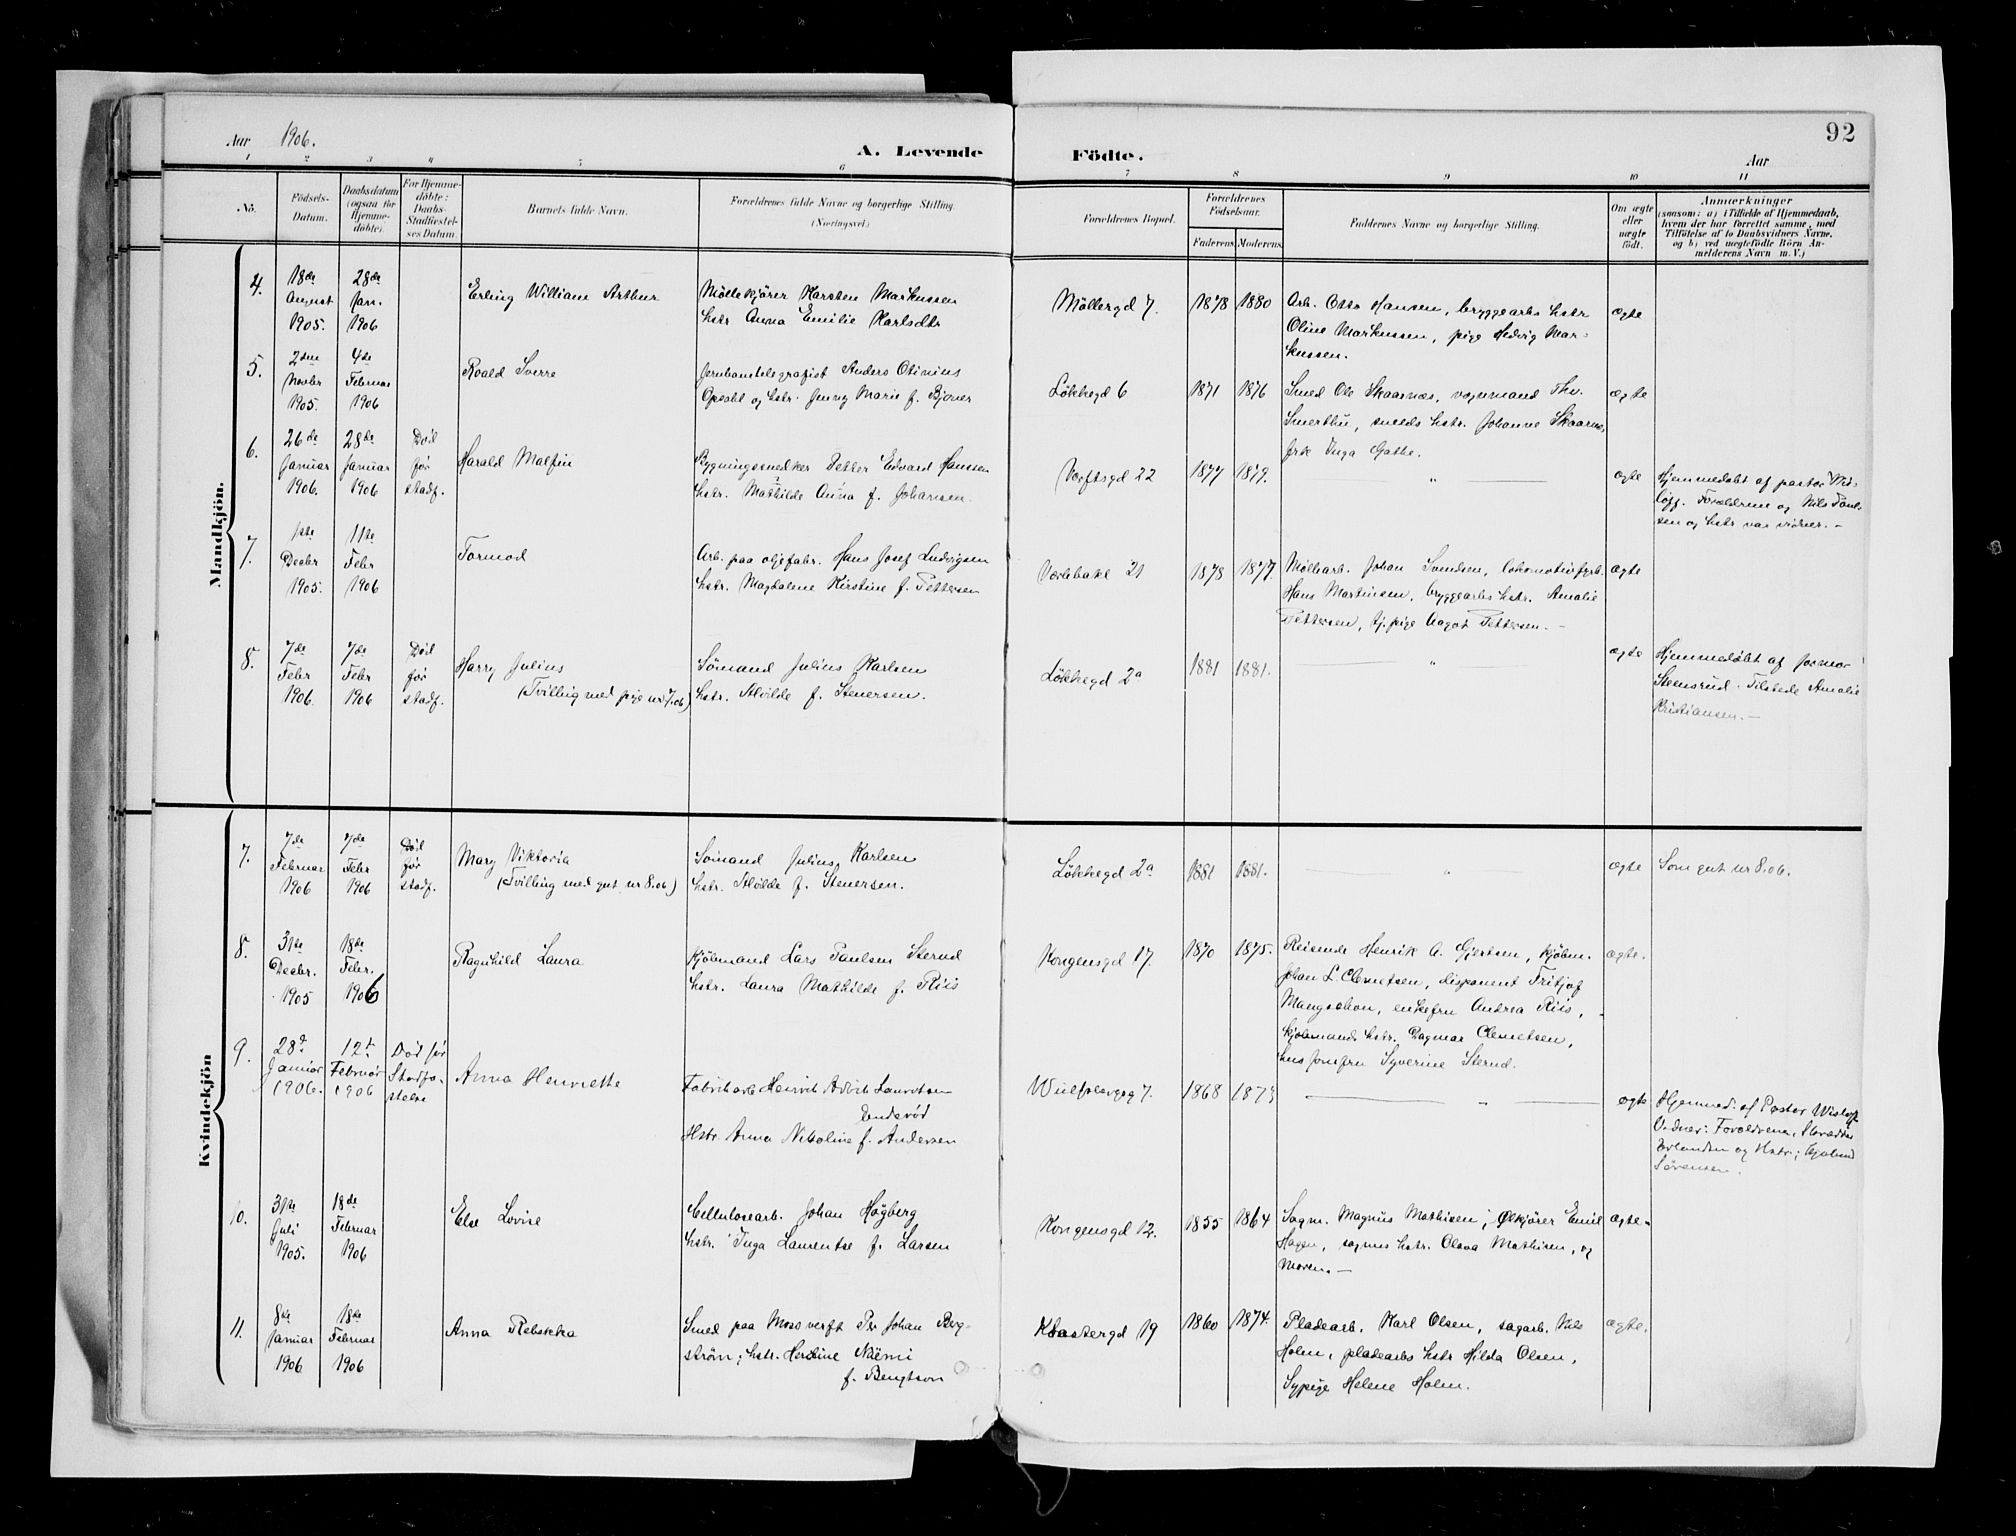 92
Aar 1906.
A. Levende Födte.
Aar
1 2 3 4 5 6 7 8 9 10 11
Nö.
Födsels-Datum.
Daabsdatum (ogsaa för Hjemme-döbte).
For Hjemme-döbte: Daabs-Stadfæstel-ses Datum.
Barnets fulde Navn.
Forældrenes fulde Navne og borgerlige Stilling.
(Næringsvei.)
Forældrenes Bopæl.
Forældrenes Födselsaar.
Faderens. Moderens.
Faddernes Navne og borgerlige Stilling.
Om ægte eller uægte födt.
Anmærkninger
(saasom: a) i Tilfælde af Hjemmedaab,
hvem der har forrettet samme, med
Tilföielse af to Daabsvidners Navne,
og b) ved uegtefödte Börn An-
melderens Navn m. V.)
Mandkjön.
4.
18de August 1905.
28de Jan. 1906
Erling William Arthur
Møllekjører Karsten Markussen
hstr Anna Emilie Karlsdtr
Møllergd 7.
1878 1880
Arb. Otto Hansen, bryggearbs hstr
Oline Markussen, pige Hedvig Mar-
kussen.
ægte
5.
2den Novbr 1905.
4de Februar 1906
Roald Sverre
Jernbantelegrafist Anders Otinius
Opsahl og hstr. Jenny Marie f. Bjoner
Løkkegd 6
1871 1876
Smed Ole Skaarnæs, vognmand Thv.
Smerthu, smeds hstr. Johanne Skaarnæs,
frk Inga Gathe.
ægte
6.
26de Januar 1906.
28de Januar 1906
Død før stadf.
Harald Malfin
Bygningssnedker Petter Edvard Hanssen
hstr. Mathilde Anna f. Johansen.
Værftsgd 22
1877 1879.
— " —
ægte
Hjemmedøbt af pastor Wis-
løff. Forældrene og Nils Paul-
sen og hstr var vidner. -
7.
1ste Decbr 1905.
11te Febr 1906
Tormod
Arb. paa oljefabr. Hans Josef Ludvigsen
hstr. Magdalene Kirstine f. Pettersen
Værlebakk 21
1878 1877.
Møllearb. Johan Svendsen, lokomotivfyrb.
Hans Martinsen, bryggearbs hstr. Amalie
Pettersen, tj.pige Aagot Pettersen. -
ægte
8.
7de Febr 1906.
7de Febr 1906
Død før stadf.
Harry Julius
(Tvilling med pige nr 7.06)
Sømand Julius Karlsen
hstr. Alvilde f. Stenersen.
Løkkegd 2a
1881 1881.
— " —
ægte
Hjemmedøbt af jormor
Stensrud. Tilstede Amalie
Kristiansen. -
Kvindekjön
7.
7de Februar 1906
7de Febr 1906
Død før stadf.
Mary Viktoria
(Tvilling med gut nr 8.06)
Sømand Julius Karlsen
hstr. Alvilde f. Stenersen.
Løkkegd 2a
1881 1881.
— " —
ægte
Som gut nr 8.06.
8.
31te Decbr. 1905
18de Febr. 1906
Ragnhild Laura
Kjøbmand Lars Paulsen Sterud
hstr. Laura Mathilde f. Riis
Kongensgd 17.
1870 1875.
Reisende Henrik A. Gjertsen, kjøbm.
Johan L. Clemetsen, disponent Fritjof
Mangschou, enkefru Andrea Riis,
kjøbmands hstr. Dagmar Clemetsen,
husjomfru Syverine Sterud.
ægte.
9.
28d. Januar 1906.
12t. Februar 1906
Død før Stadfæ-stelse
Anna Henriette
Fabrikarb Henrik Lauritsen
Hstr. Anna Nikoline f. Andersen
7.
1868 1873
— " —
ægte
Hjemmed. af Pastor Wisløff
Vidner: Forældrene,
og Hstr;
Sørensen.
10.
31te Juli 1905.
18de Februar 1906
Else Lovise
Cellulosearb. Johan Høgberg
hstr. Inga Laurentse f. Larsen
Kongensgd 12.
1855 1864
Sagm. Magnus Mathisen, Ølkjører Emil
Hagen, sagms hstr. Olava Mathisen, og
Moren. -
ægte.
11.
8de Januar 1906
18de Februar 1906
Anna Rebekka
Smed paa Moss verft Per Johan Berg-
strøm; hstr. Herdine Näemi
f. Bengtson
Klostergd 19
1860 1874.
Pladearb. Karl Olsen, sagarb. Nils
Holm, pladearbs hstr Hilda Olsen,
Sypige Helene Holm.
ægte.